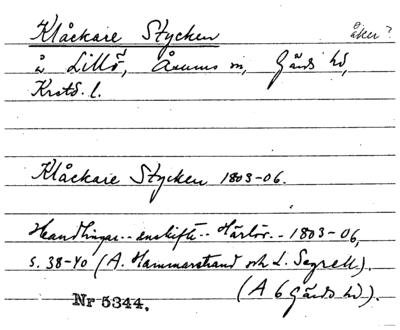 Klåckare Stycken åker?
å Lillö, Åsums sn, Gärds hd,
Krstd. l.
Klåckare Stycken 1803-06.
Handlingar.. enskifte.. Härlöv.. 1803-06,
s. 38-40 (A. Hammarstrand och L. Segrell).
(A 6 Gärds hd).
Nr 5344.